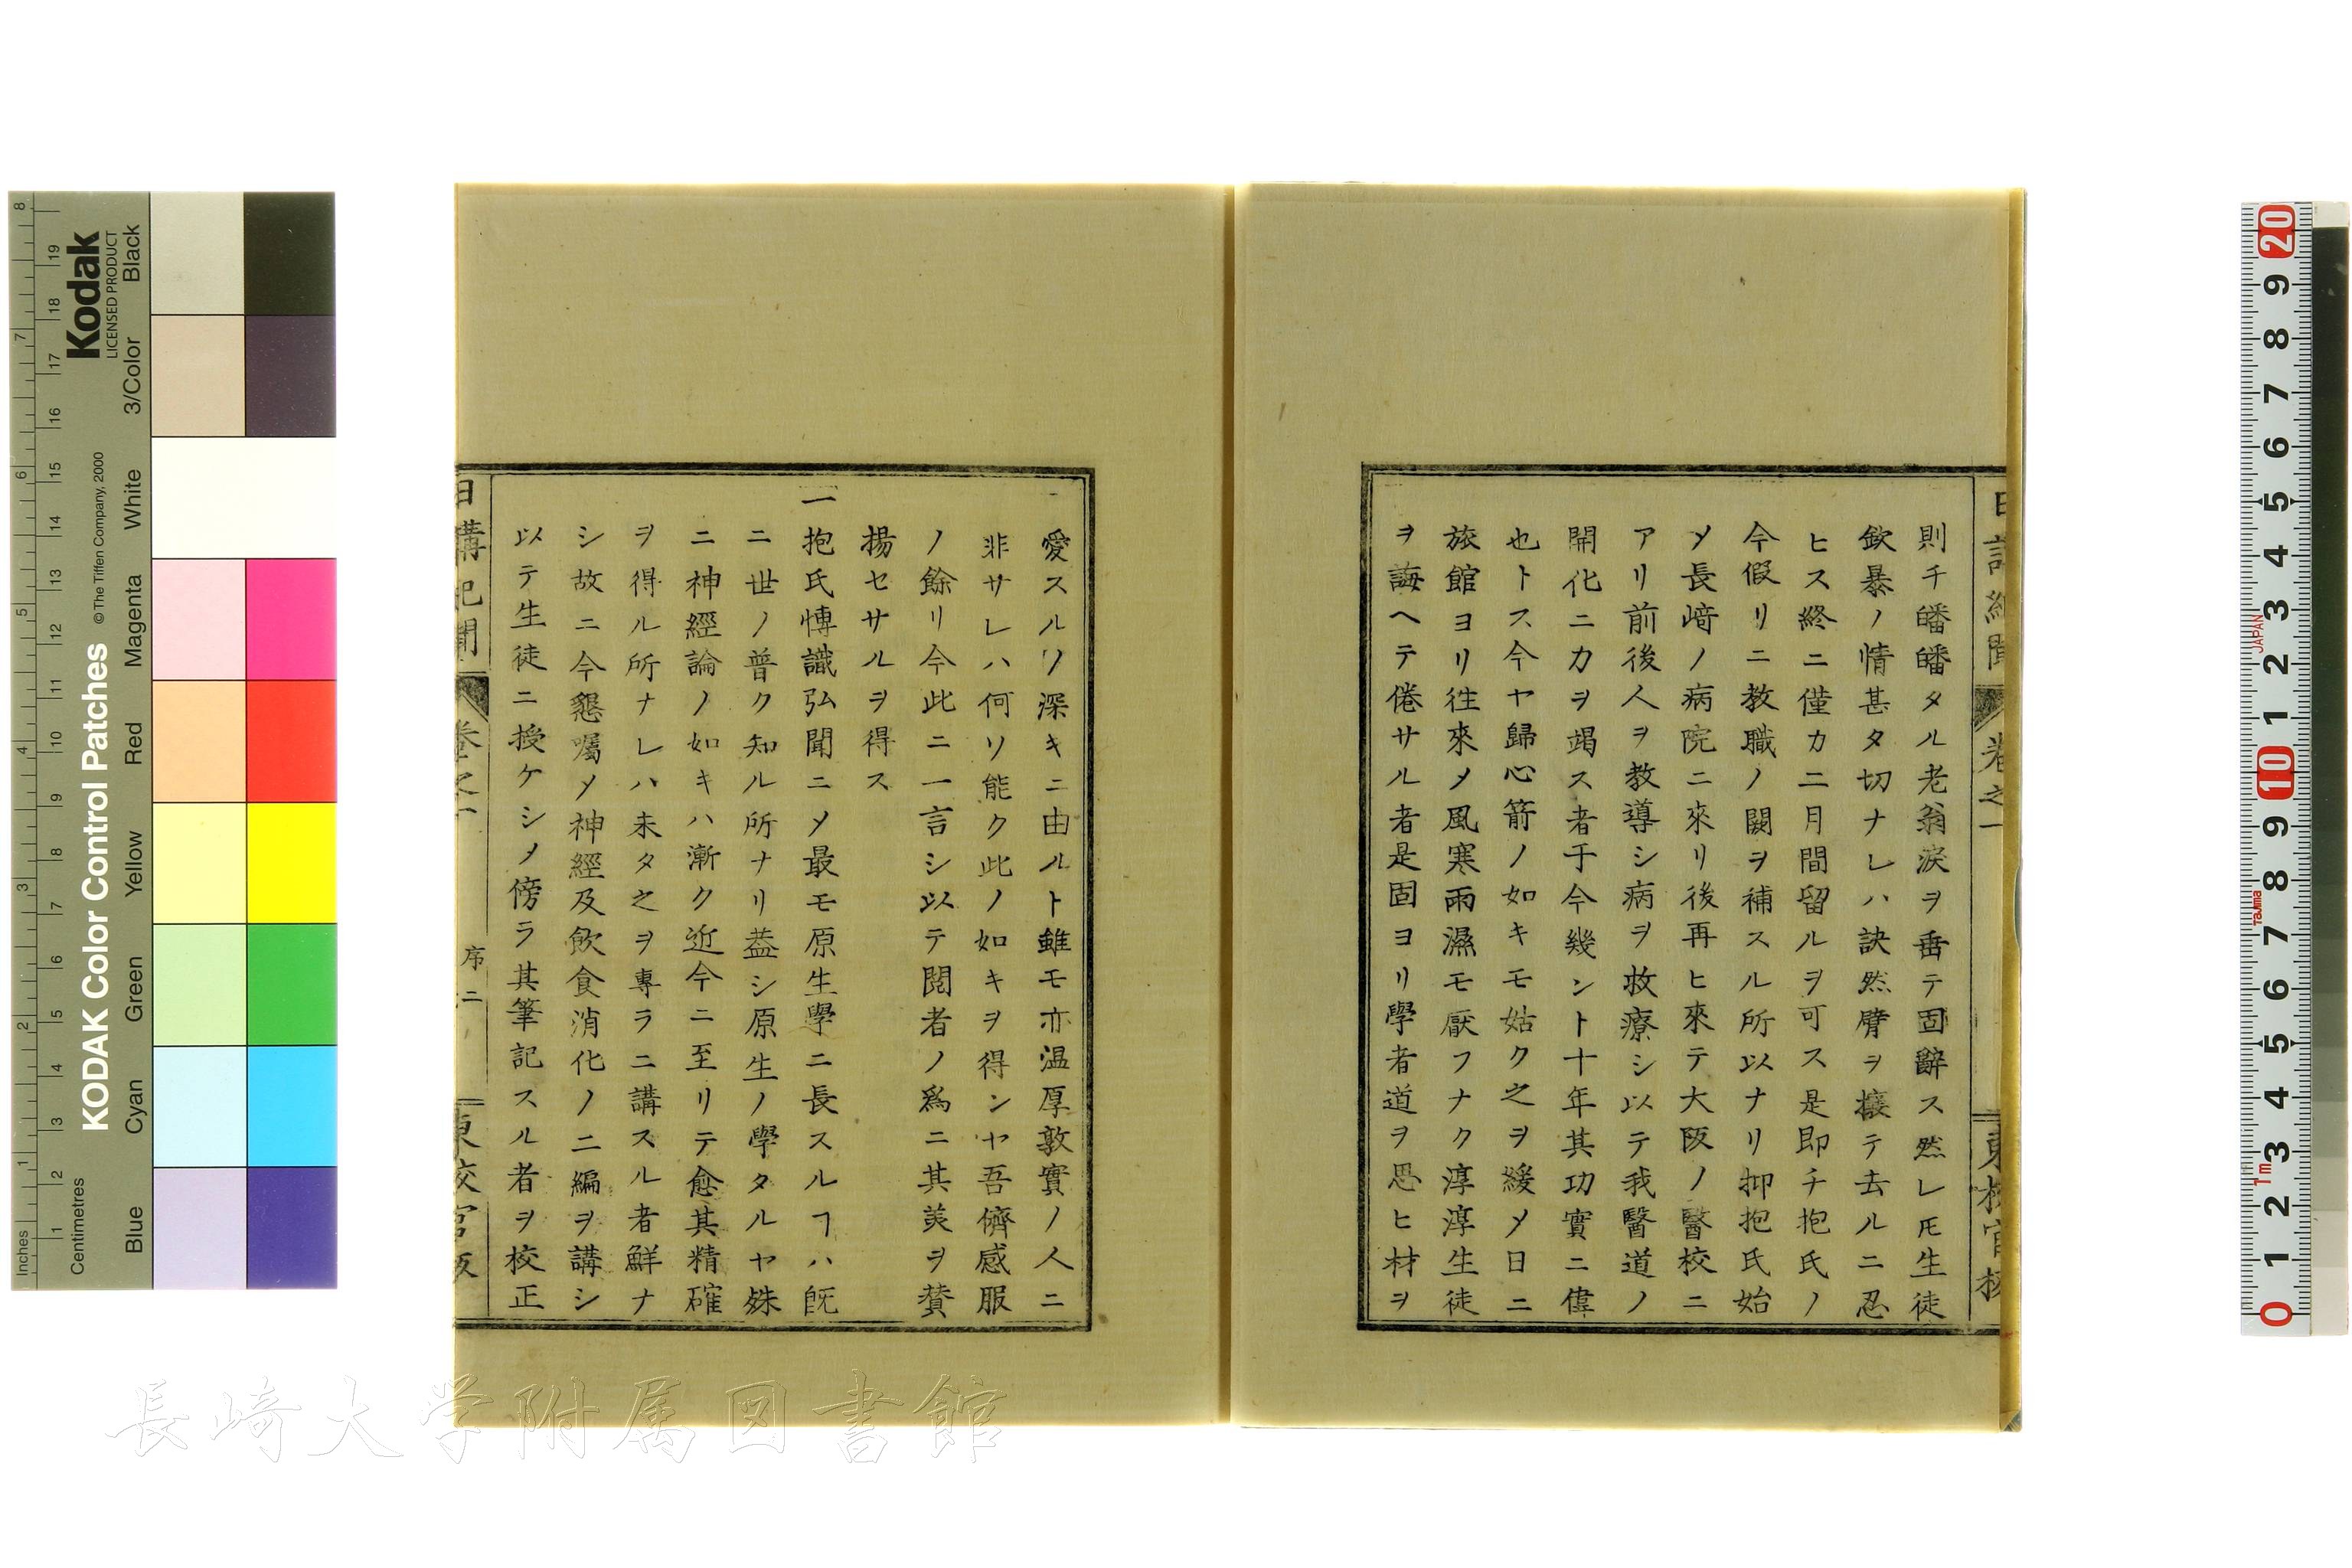 則チ皤皤タル老翁涙ヲ垂テ固辭ス然レ𪜈生徒
欽暴ノ情甚タ切ナレハ訣然臂ヲ攘テ去ルニ忍
ヒス終ニ僅カ二月間留ルヲ可ス是即チ抱氏ノ
今假リニ教職ノ闕ヲ補スル所以ナリ抑抱氏始
メ長﨑ノ病院ニ來リ後再ヒ來テ大阪ノ醫校ニ
アリ前後人ヲ教導シ病ヲ救療シ以テ我醫道ノ
開化ニカヲ竭ス者于今幾ント十年其功實ニ偉
也トス今ヤ歸心箭ノ如キモ姑ク之ヲ緩メ日ニ
旅館ヨリ徃來メ風寒雨濕モ厭フナク淳淳生徒
ヲ誨ヘテ倦サル者是固ヨリ學者道ヲ思ヒ材ヲ
愛スルノ深キニ由ルト雖モ亦温厚敦實ノ人ニ
非サレハ何ソ能ク此ノ如キヲ得ンヤ吾儕感服
ノ餘リ今此ニ一言シ以テ閲者ノ爲ニ其美ヲ賛
揚セサルヲ得ス
一抱氏博識弘聞ニメ最モ原生學ニ長スルヿハ既
ニ世ノ普ク知ル所ナリ葢シ原生ノ學タルヤ殊
ニ神經論ノ如キハ漸ク近今ニ至リテ愈其精確
ヲ得ル所ナレハ未タ之ヲ專ラニ講スル者鮮ナ
シ故ニ今懇囑メ神經及飲食消化ノ二編ヲ講シ
以テ生徒ニ授ケシメ傍ラ其筆記スル者ヲ校正
日講記聞 卷之一 序二 東校官版
Kodak
LICENSED PRODUCT
KODAK Color Control Patches
©The Tiffen Company, 2000
Inches
Centimetres
Blue Cyan Green Yellow Red Magenta White 3/Color Black
長崎大学附属図書館
JAPAN
Tajima
1m